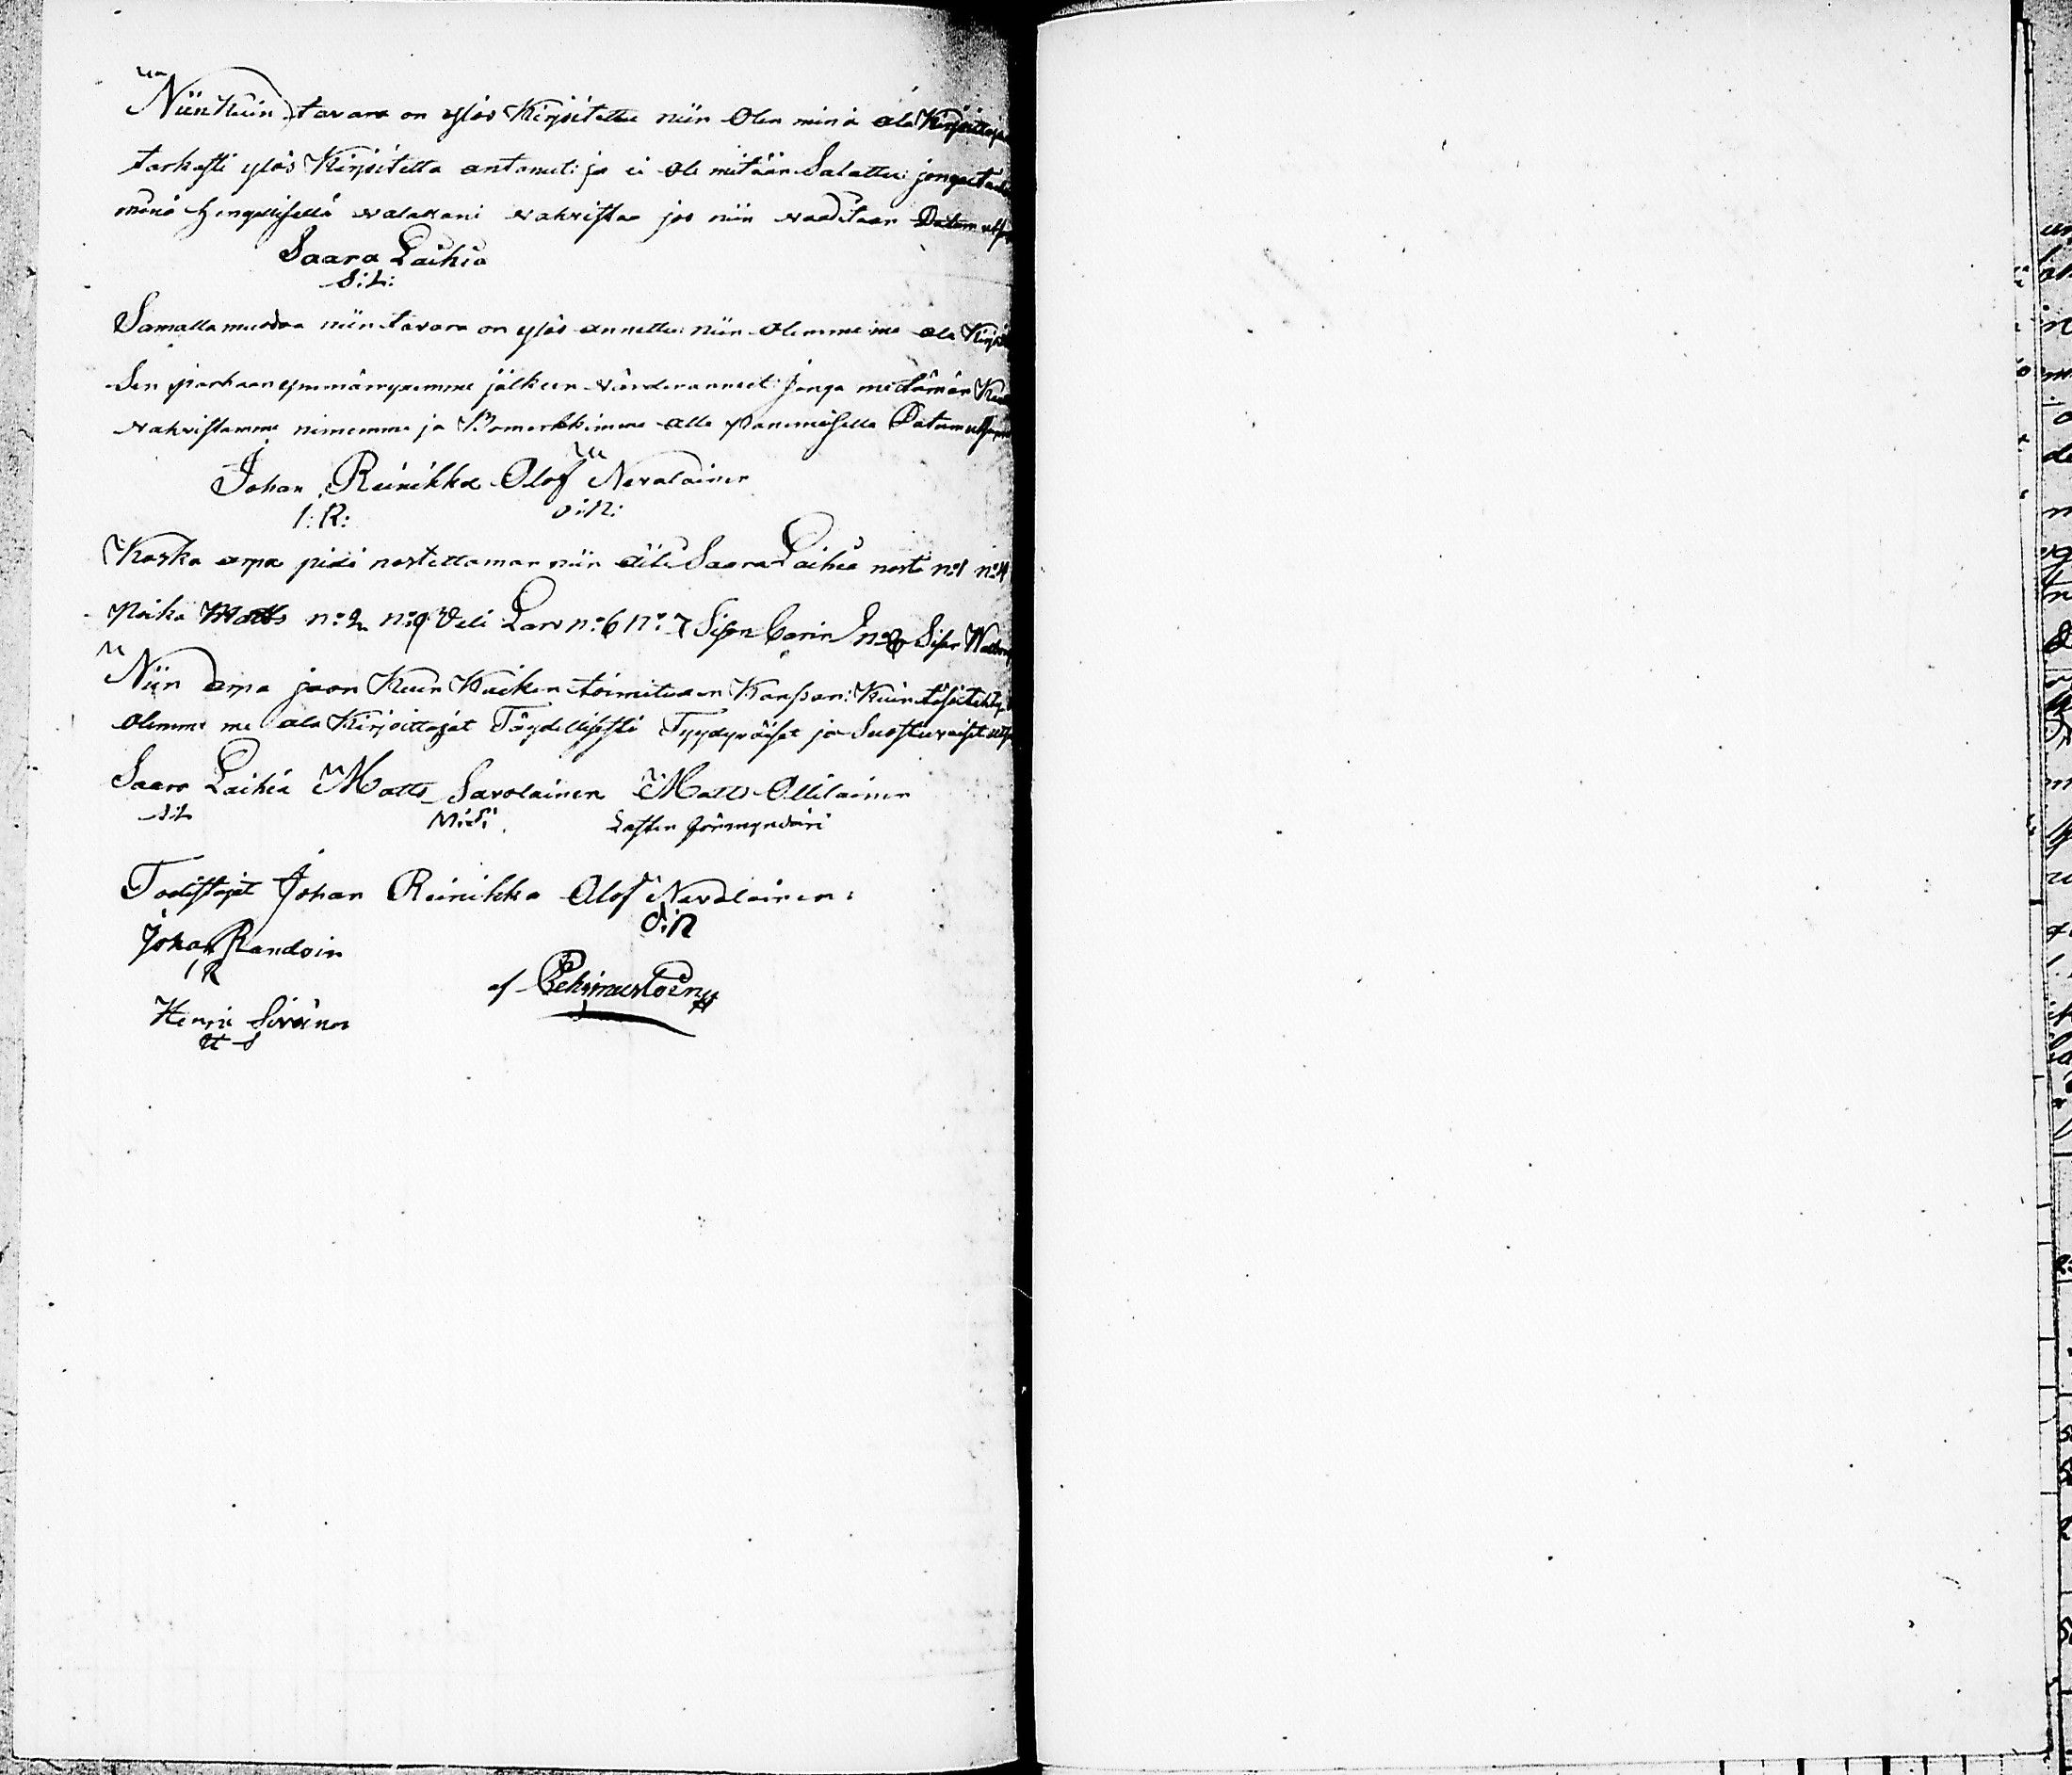 Niin Kuin tavara on ylös Kirjoitettu niin Olen minä ala Kirjoittaja
tarkasti ylös Kirjoitetta antanut: ja ei ole mitään Salattu: jonga
minä hengellisellä valallani vahvistaa jos niin vaaditaan Datum
Saara Laihia
S: L:
Samalla muodoa niin tavara on ylös annettu: niin olemme me ala
Sen parhaan ymmärryxemme jälkeen värderanneet: Jonga me tämän
vahvistamme nimemme ja Bomerkkimme alle panemisella Datum
Johan Reinikka Olof Nevalainen
I: R: O: N:
Koska arpa pidi nostettaman niin äiti Saara Laihia nosti no: 1 no: 4
Poika Matts no: 2 no: 9 Veli Lars no: 6 no: 7 Sisar Carin no: 8 Sisar
Niin arpa jaon Kuin Kaiken toimituxen Kanssan: Kuin
olemme me ala Kirjoittajat Täydellisesti Tyydyväiset ja Suostuvaiset
Saara Laihia Matts Savolainen Matts Ollilainen
S: L M: S: Lasten förmyndäri
Todistajat Johan Reinikka Olof Nevalainen:
O: N
Johan Randoin
I R
af
Henri Sivoinen
H S